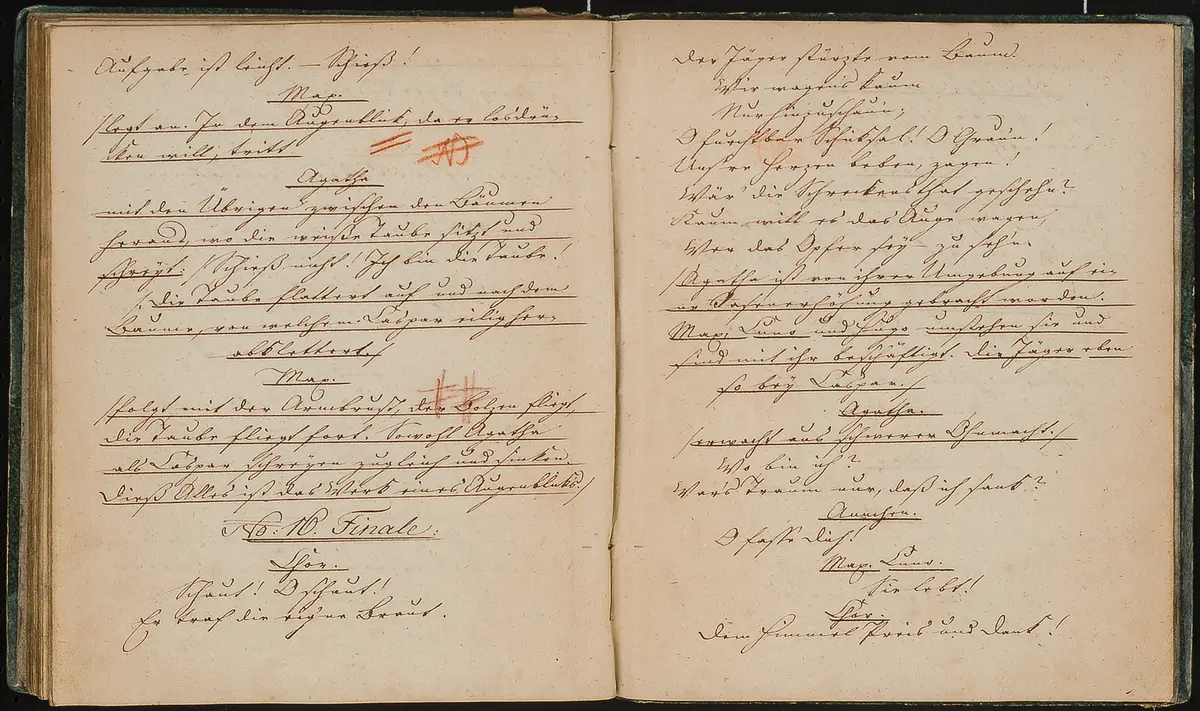 Aufgabe ist leicht. — Schieß!
Max.
/:legt an. In dem Augenblik, da er losdrü-
cken will, tritt
Agatha
mit den Übrigen zwischen den Bäumen
heraus, wo die weiße Taube sitzt und
schreyt:/ Schieß nicht! Ich bin die Taube!
/:Die Taube flattert auf und nach dem
Baume, von welchem Caspar eilig her-
abklettert./
Max.
/folgt mit der Armbrust, der Bolzen fliegt,
die Taube fliegt fort. Sowohl Agatha
als Caspar schreyen zugleich und sinken.
Dieß Alles ist das Werk eines Augenbliks./
No: 16. Finale:
Chor.
Schaut! O schaut!
Er traf die eigne Braut.
Der Jäger stürzte vom Baum.
Wir wagens kaum
Nur hinzuschaun;
O furchtbar Schiksal! O Graun!
Uns're Herzen beben, zagen!
Wär' die Schreckensthat gescheh'n?
Kaum will es das Auge wagen,
Wer das Opfer sey – zu seh'n.
/Agatha ist von ihrer Umgebung auf ei-
ne Rasenerhöhung gebracht worden.
Max, Cuno und Hugo umstehen sie und
sind mit ihr beschäftigt. Die Jäger eben
so bey Caspar./
Agatha.
/erwacht aus schwerer Ohnmacht./
Wo bin ich?
War's Traum nur, daß ich sank?
Annchen.
O fasse dich!
Max. Cuno.
Sie lebt!
Chor.
Dem Himmel Preis und Dank!